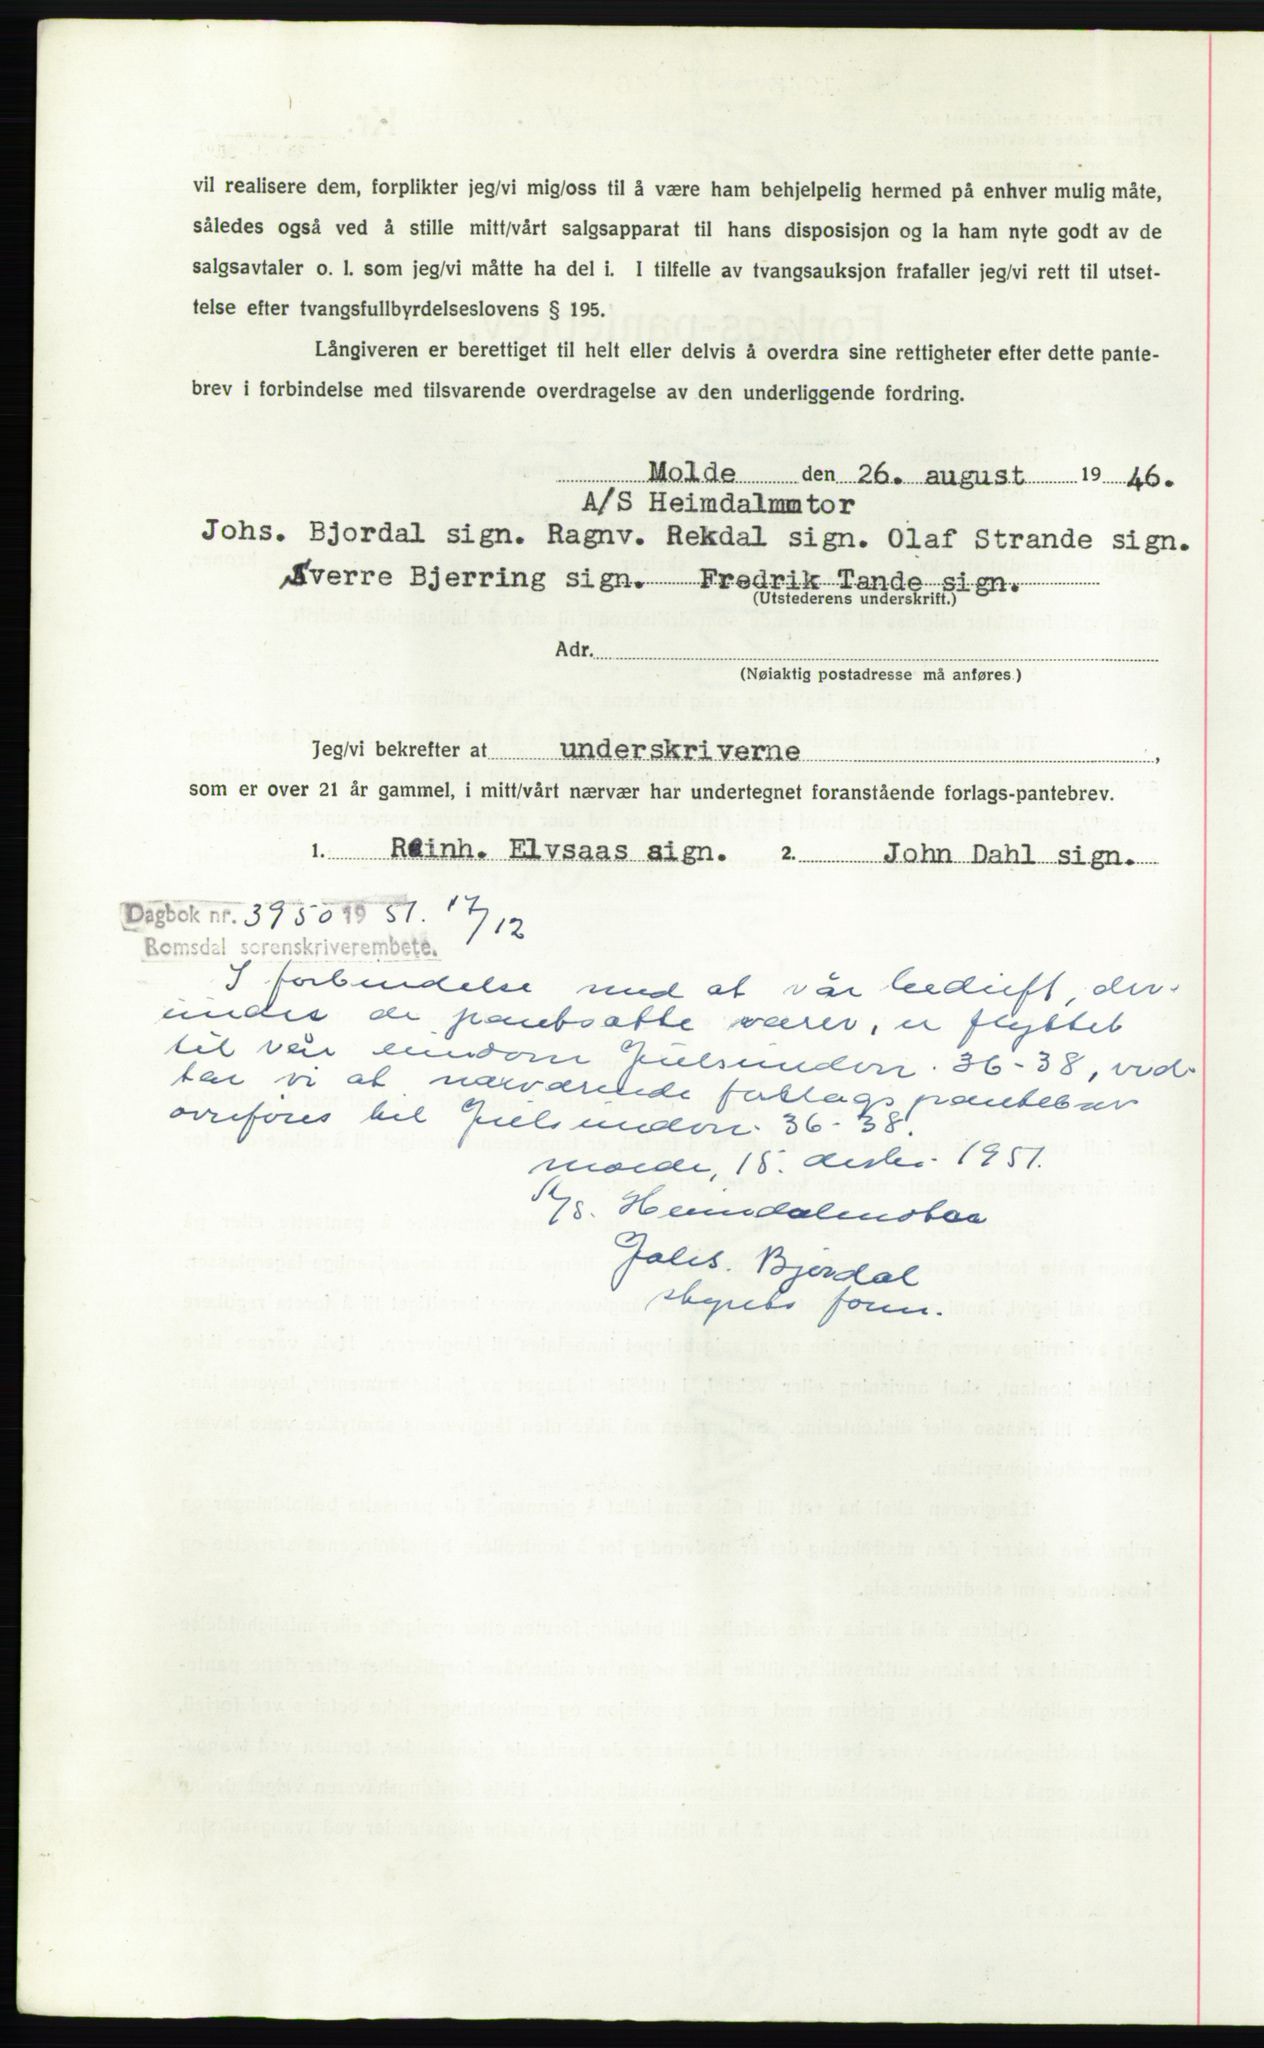 vil realisere dem, forplikter jeg/vi mig/oss til å være ham behjelpelig hermed på enhver mulig måte,
således også ved å stille mitt/vårt salgsapparat til hans disposisjon og la ham nyte godt av de
salgsavtaler o. l. som jeg/vi måtte ha del i. I tilfelle av tvangsauksjon frafaller jeg/vi rett til utset-
telse efter tvangsfullbyrdelseslovens § 195.
Långiveren er berettiget til helt eller delvis å overdra sine rettigheter efter dette pante-
brev i forbindelse med tilsvarende overdragelse av den underliggende fordring.
Molde den 26. august 19 46.
A/S Heimdalmotor
Johs. Bjordal sign. Ragnv. Rekdal sign. Olaf Strande sign.
Sverre Bjerring sign. Fredrik Tande sign.
(Utstederens underskrift.)
Adr.
(Nøiaktig postadresse må anføres.)
Jeg/vi bekrefter at underskriverne,
som er over 21 år gammel, i mitt/vårt nærvær har undertegnet foranstående forlags-pantebrev.
1. Reinh. Elvsaas sign. 2. John Dahl sign.
Dagbok nr. 3950 19 51. 17/12
Romsdal sorenskriverembete.
I forbindelse med at vår bedrift, der-
under de pantsatte varer, er flyttet
til vår eiendom Julsundvn. 36-38, ved-
tar vi at nærværende forlagspantebrev
overføres til Julsundvn. 36-38.
Molde, 15. desbr. 1951.
A/S. Heimdalmotor
Johs. Bjordal
styrets form.